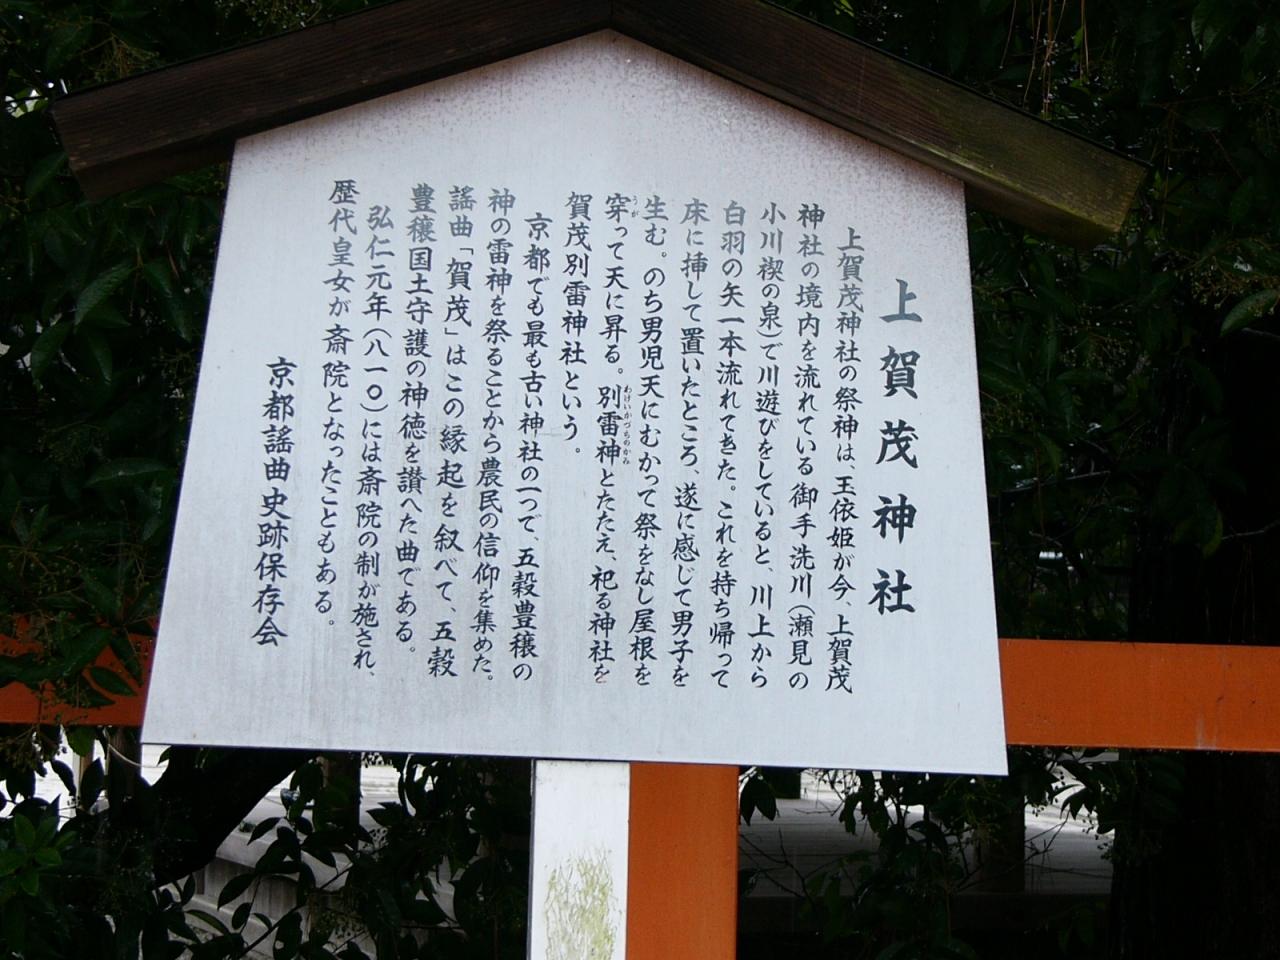 上賀茂神社
上賀茂神社の祭神は、玉依姫が今、上賀茂
神社の境内を流れている御手洗川(瀬見の
小川禊の泉)で川遊びをしていると、川上から
白羽の矢一本流れてきた。これを持ち帰って
床に挿して置いたところ、遂に感じて男子を
生む。のち男児天にむかって祭をなし屋根を
穿って天に昇る。別雷神とたたえ、祀る神社を
うが
わけいかづちのかみ
賀茂別雷神社という。
京都でも最も古い神社の一つで、五穀豊穣の
神の雷神を祭ることから農民の信仰を集めた。
謠曲「賀茂」はこの縁起を叙べて、五穀
豊穣国土守護の神徳を讃へた曲である。
弘仁元年(八一〇)には斎院の制が施され、
歴代皇女が斎院となったこともある。
京都謠曲史跡保存会